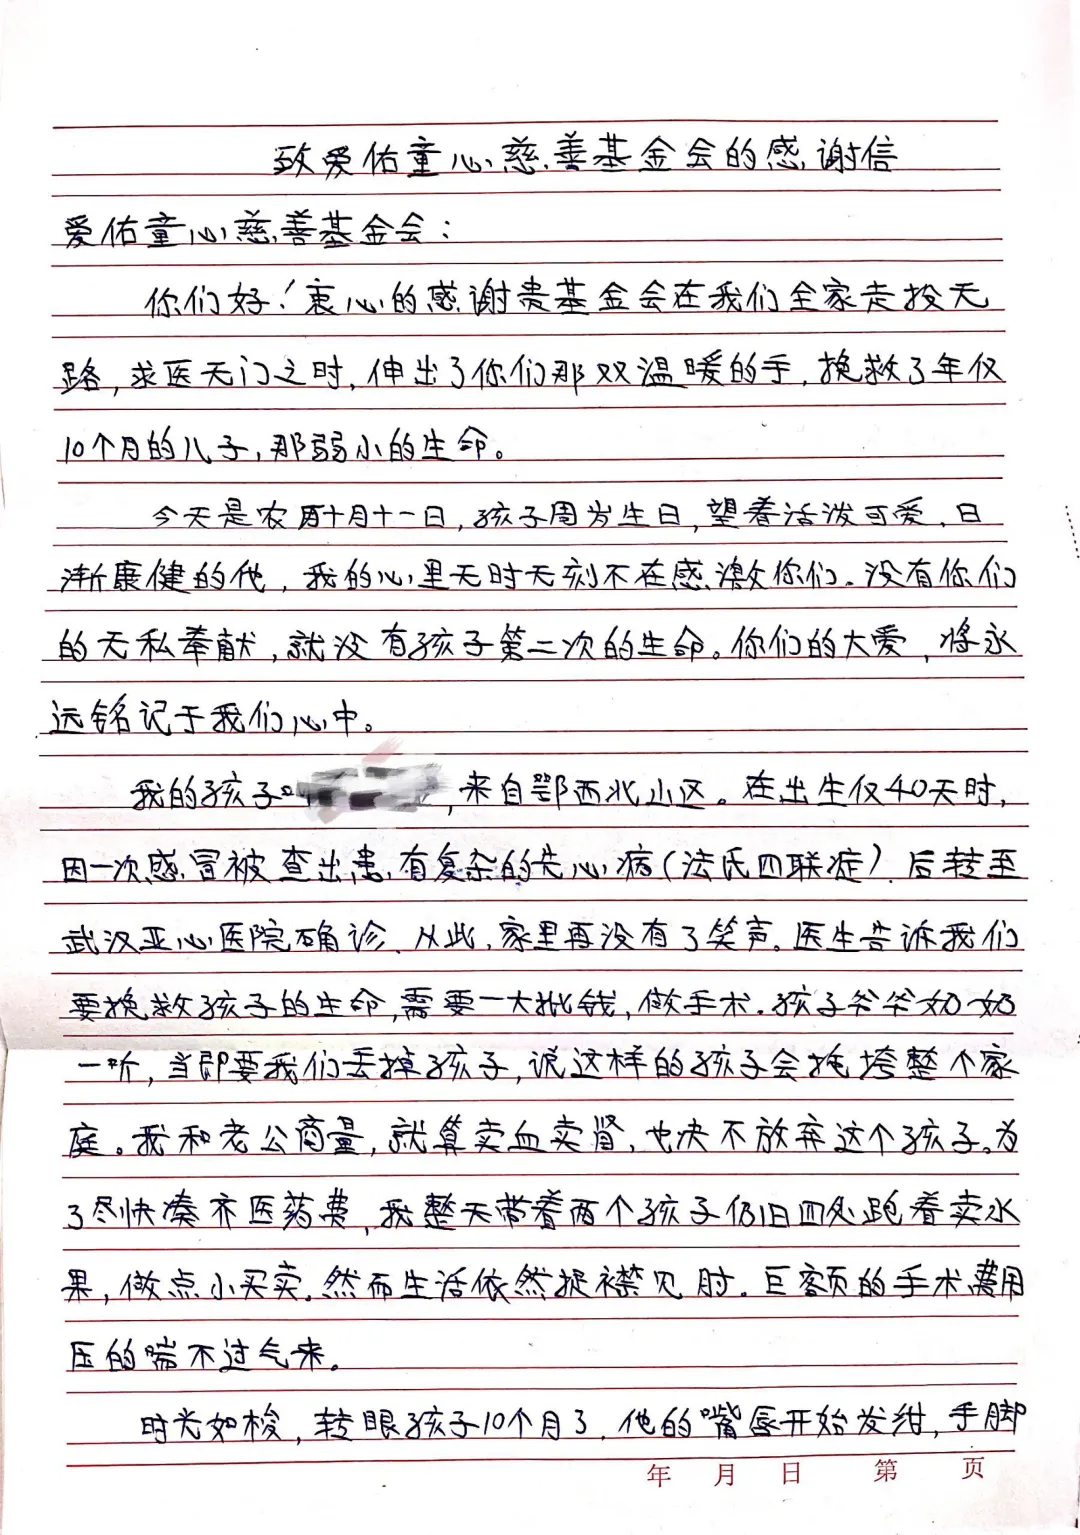 致爱佑童心慈善基金会的感谢信
爱佑童心慈善基金会:
你们好!衷心的感谢贵基金会在我们全家走投无
路,求医无门之时,伸出了你们那双温暖的手,挽救了年仅
10个月的儿子,那弱小的生命。
今天是农历十月十一日,孩子周岁生日,望着活泼可爱,日
渐康健的他,我的心里无时无刻不在感激你们.没有你们
的无私奉献,就没有孩子第二次的生命。你们的大爱,将永
远铭记于我们心中。
我的孩子,来自鄂西北山区。在出生仅40天时,
因一次感冒被查出患有复杂的先心病(法氏四联症).后转至
武汉亚心医院确诊.从此,家里再没有了笑声.医生告诉我们
要挽救孩子的生命,需要一大批钱,做手术.孩子爷爷奶奶
一听,当即要我们丢掉孩子,说这样的孩子会拖垮整个家
庭。我和老公商量,就算卖血卖肾,也决不放弃这个孩子。为
了尽快凑齐医药费,我整天带着两个孩子仍旧四处跑着卖水
果,做点小买卖.然而生活依然捉襟见肘.巨额的手术费用
压的喘不过气来.
时光如梭,转眼孩子10个月了.他的嘴唇开始发绀,手脚
年 月 日 第 页